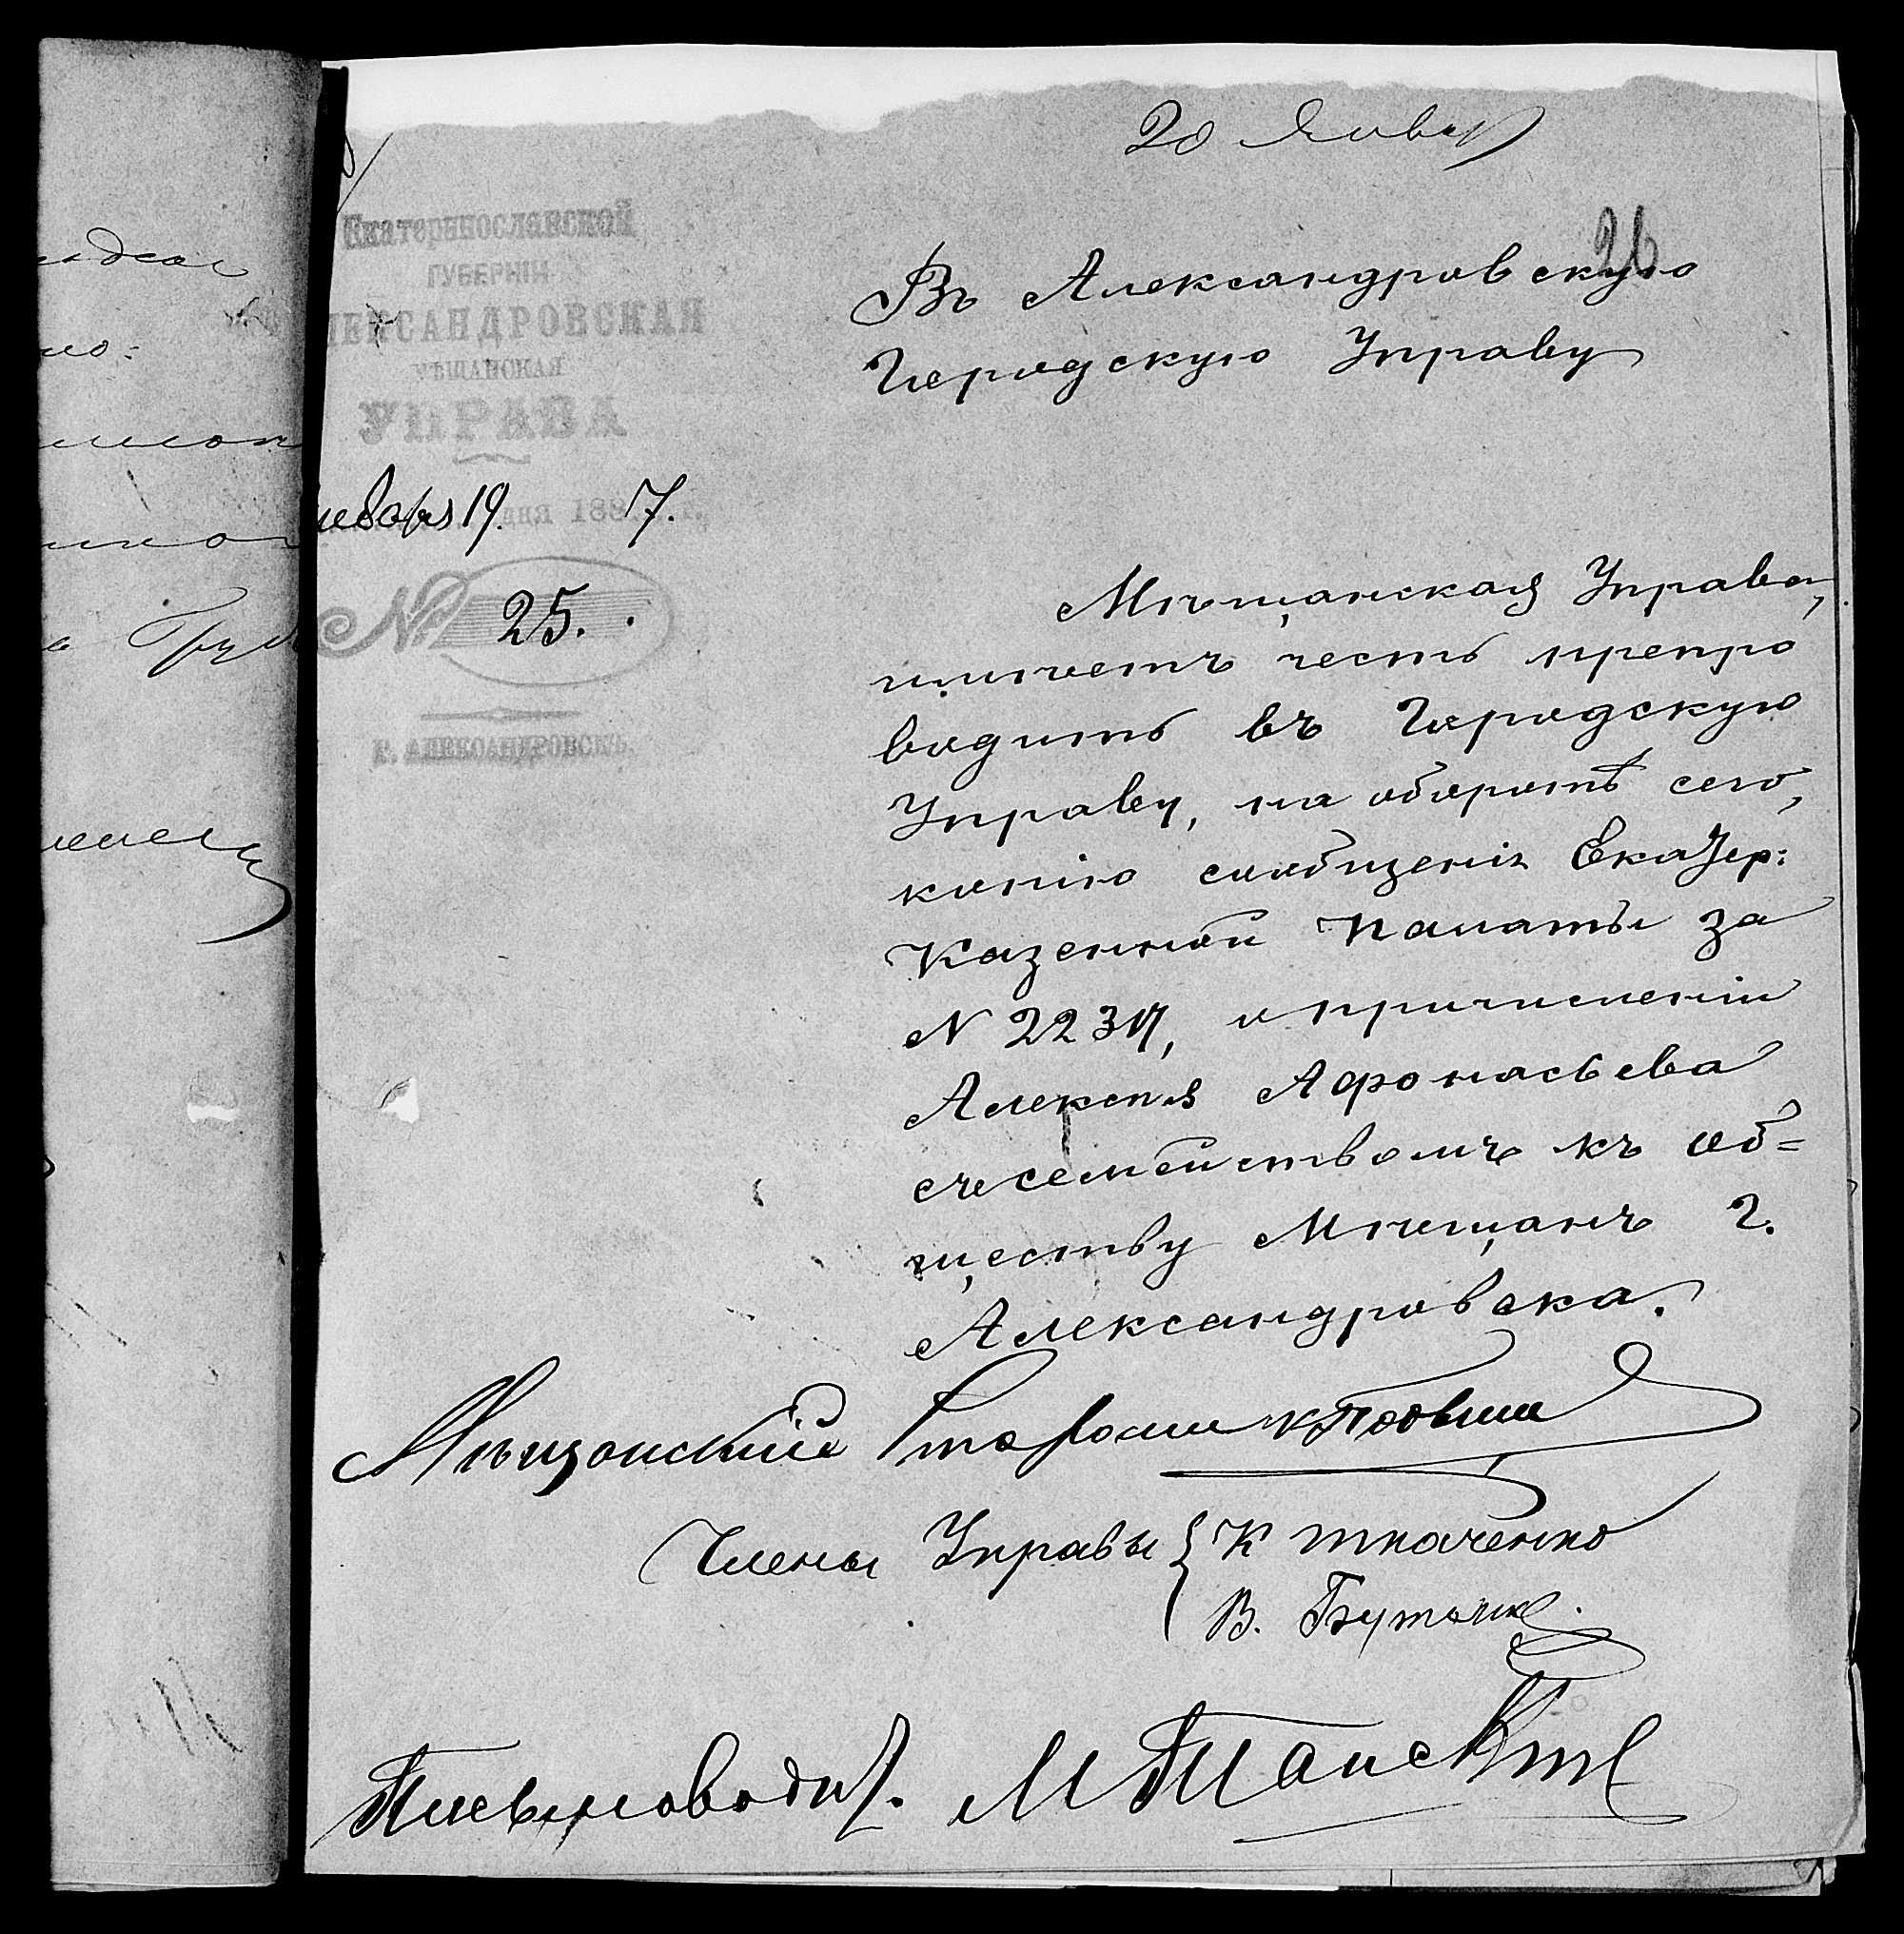 20 Январ
26
Екатеринославской
ГУБЕРНІИ
ЛЕКСАНДРОВСКАЯ
МѢЩАНСКАЯ
УПРАВА
Января 19. дня 188 7. г.
№ 25.
Г. АЛЕКСАНДРОВСКЪ.
Въ Александровскую
Городскую Управу
Мѣщанская Управа,
имѣетъ честь препро
водить въ Городскую
Управу, на оборотѣ сего,
копію сообщенія Екатер:
Казенной Палаты за
N 2237, о причисленіи
Алексѣя Афонасьева
съ семействомъ къ об=
ществу Мѣщанъ г.
Александровска.
Мѣщанскій Староста
Члены Управы { К Ткаченко
В.
Письмоводит. М